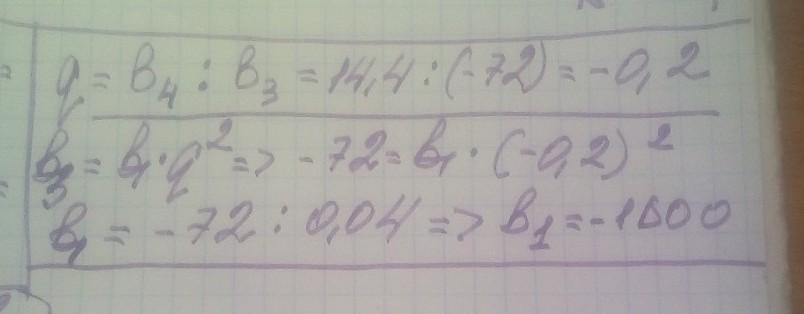 q = b₄ : b₃ = 14,4 : (-72) = -0,2
b₃ = b₁ · q² => -72 = b₁ · (-0,2)²
b₁ = -72 : 0,04 => b₁ = -1800